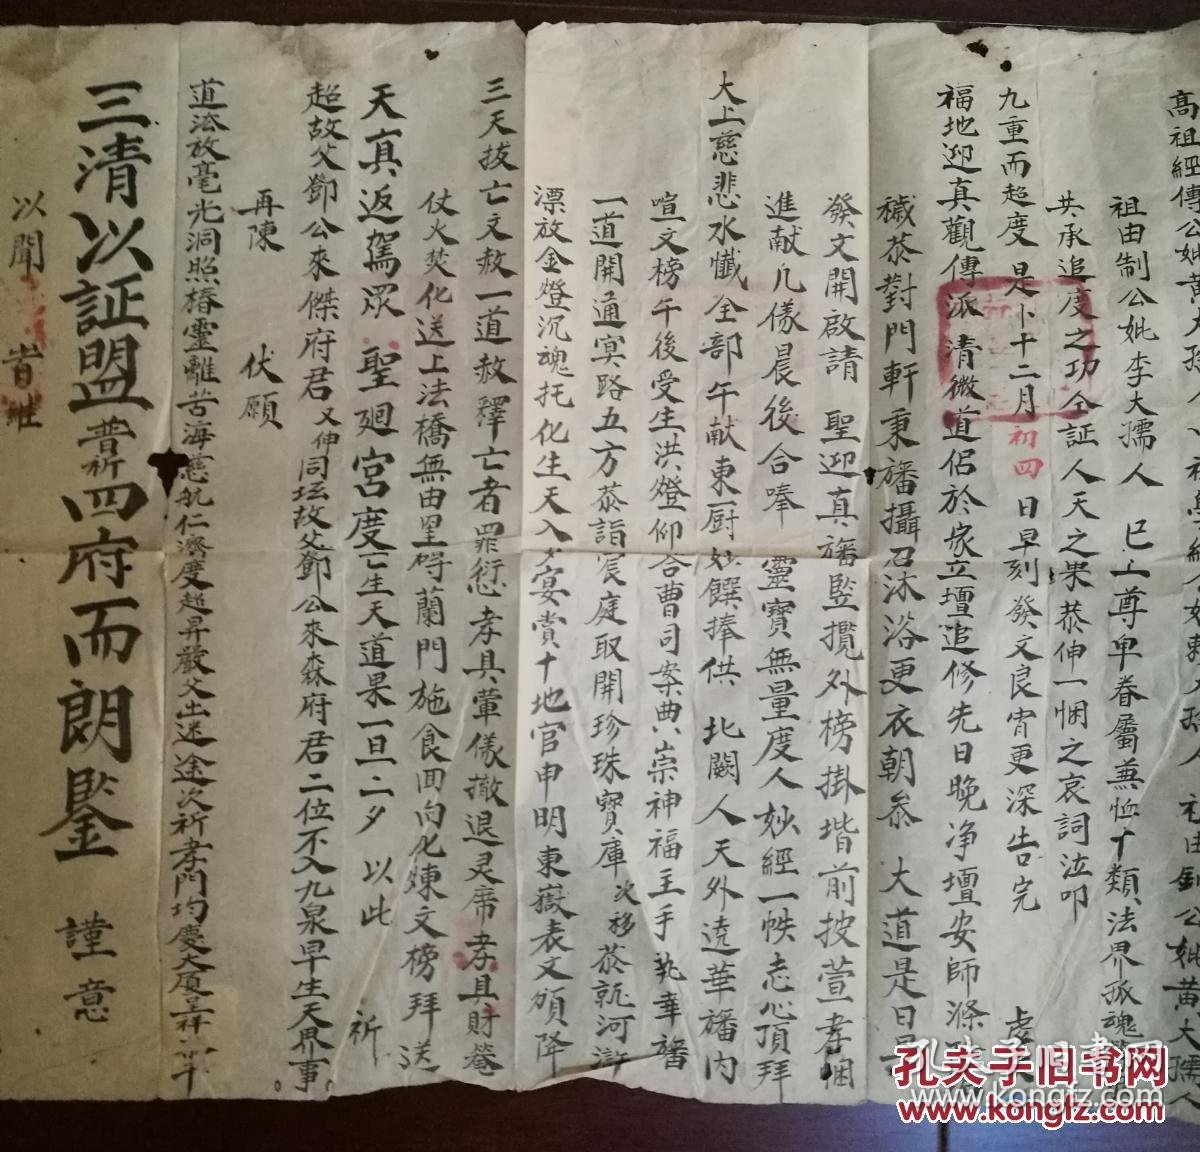 高祖經傳公妣黃大孺人
祖由制公妣李大孺人 已上尊卑眷屬兼恤十類法界孤魂
共承追度之功仝証人天之果恭伸一悃之哀詞泣叩
九重而超度是卜十二月初四日早刻發文良宵更深告完
福地迎真觀傳派清微道侶於家立壇追修先日晚净壇安師滌
穢恭對門軒秉旛攝召沐浴更衣朝参 大道是日
發文開啟請 聖迎真旛竪攬外榜掛堦前披萱孝悃
進献几儀晨後合奉 靈寶無量度人妙經一帙志心頂拜
大上慈悲水懺全部午献東厨妙饌捧供 北闕人天外遶華旛内
喧文榜午後受生洪燈仰合曹司案典崇神福主手執華旛
一道開通冥路五方恭詣宸庭取開珍珠寶庫次移恭就河滸
漂放金燈沉魂托化生天入夕宴賞十地官申明東嶽表文頒降
三天拔亡文赦一道赦釋亡者罪愆孝具葷儀撤退灵席孝具財菴
仗火焚化送上法橋無由罣碍蘭門施食回向化煉文榜拜送
天真返駕眾 聖廻宮度亡生天道果一旦二夕 以此 祈
超故父鄧公來傑府君又伸同坛故父鄧公來森府君二位不入九泉早生天界事。
再陳 伏願
道法放毫光洞照椿靈離苦海慈航仁濟度超昇嚴父出迷途次祈孝門均慶大厦呈祥
三清以証盟普祈四府而朗鑒 謹意
以聞
孔夫子旧书网
www.kongfz.com
孔夫子旧书网
www.kongfz.com